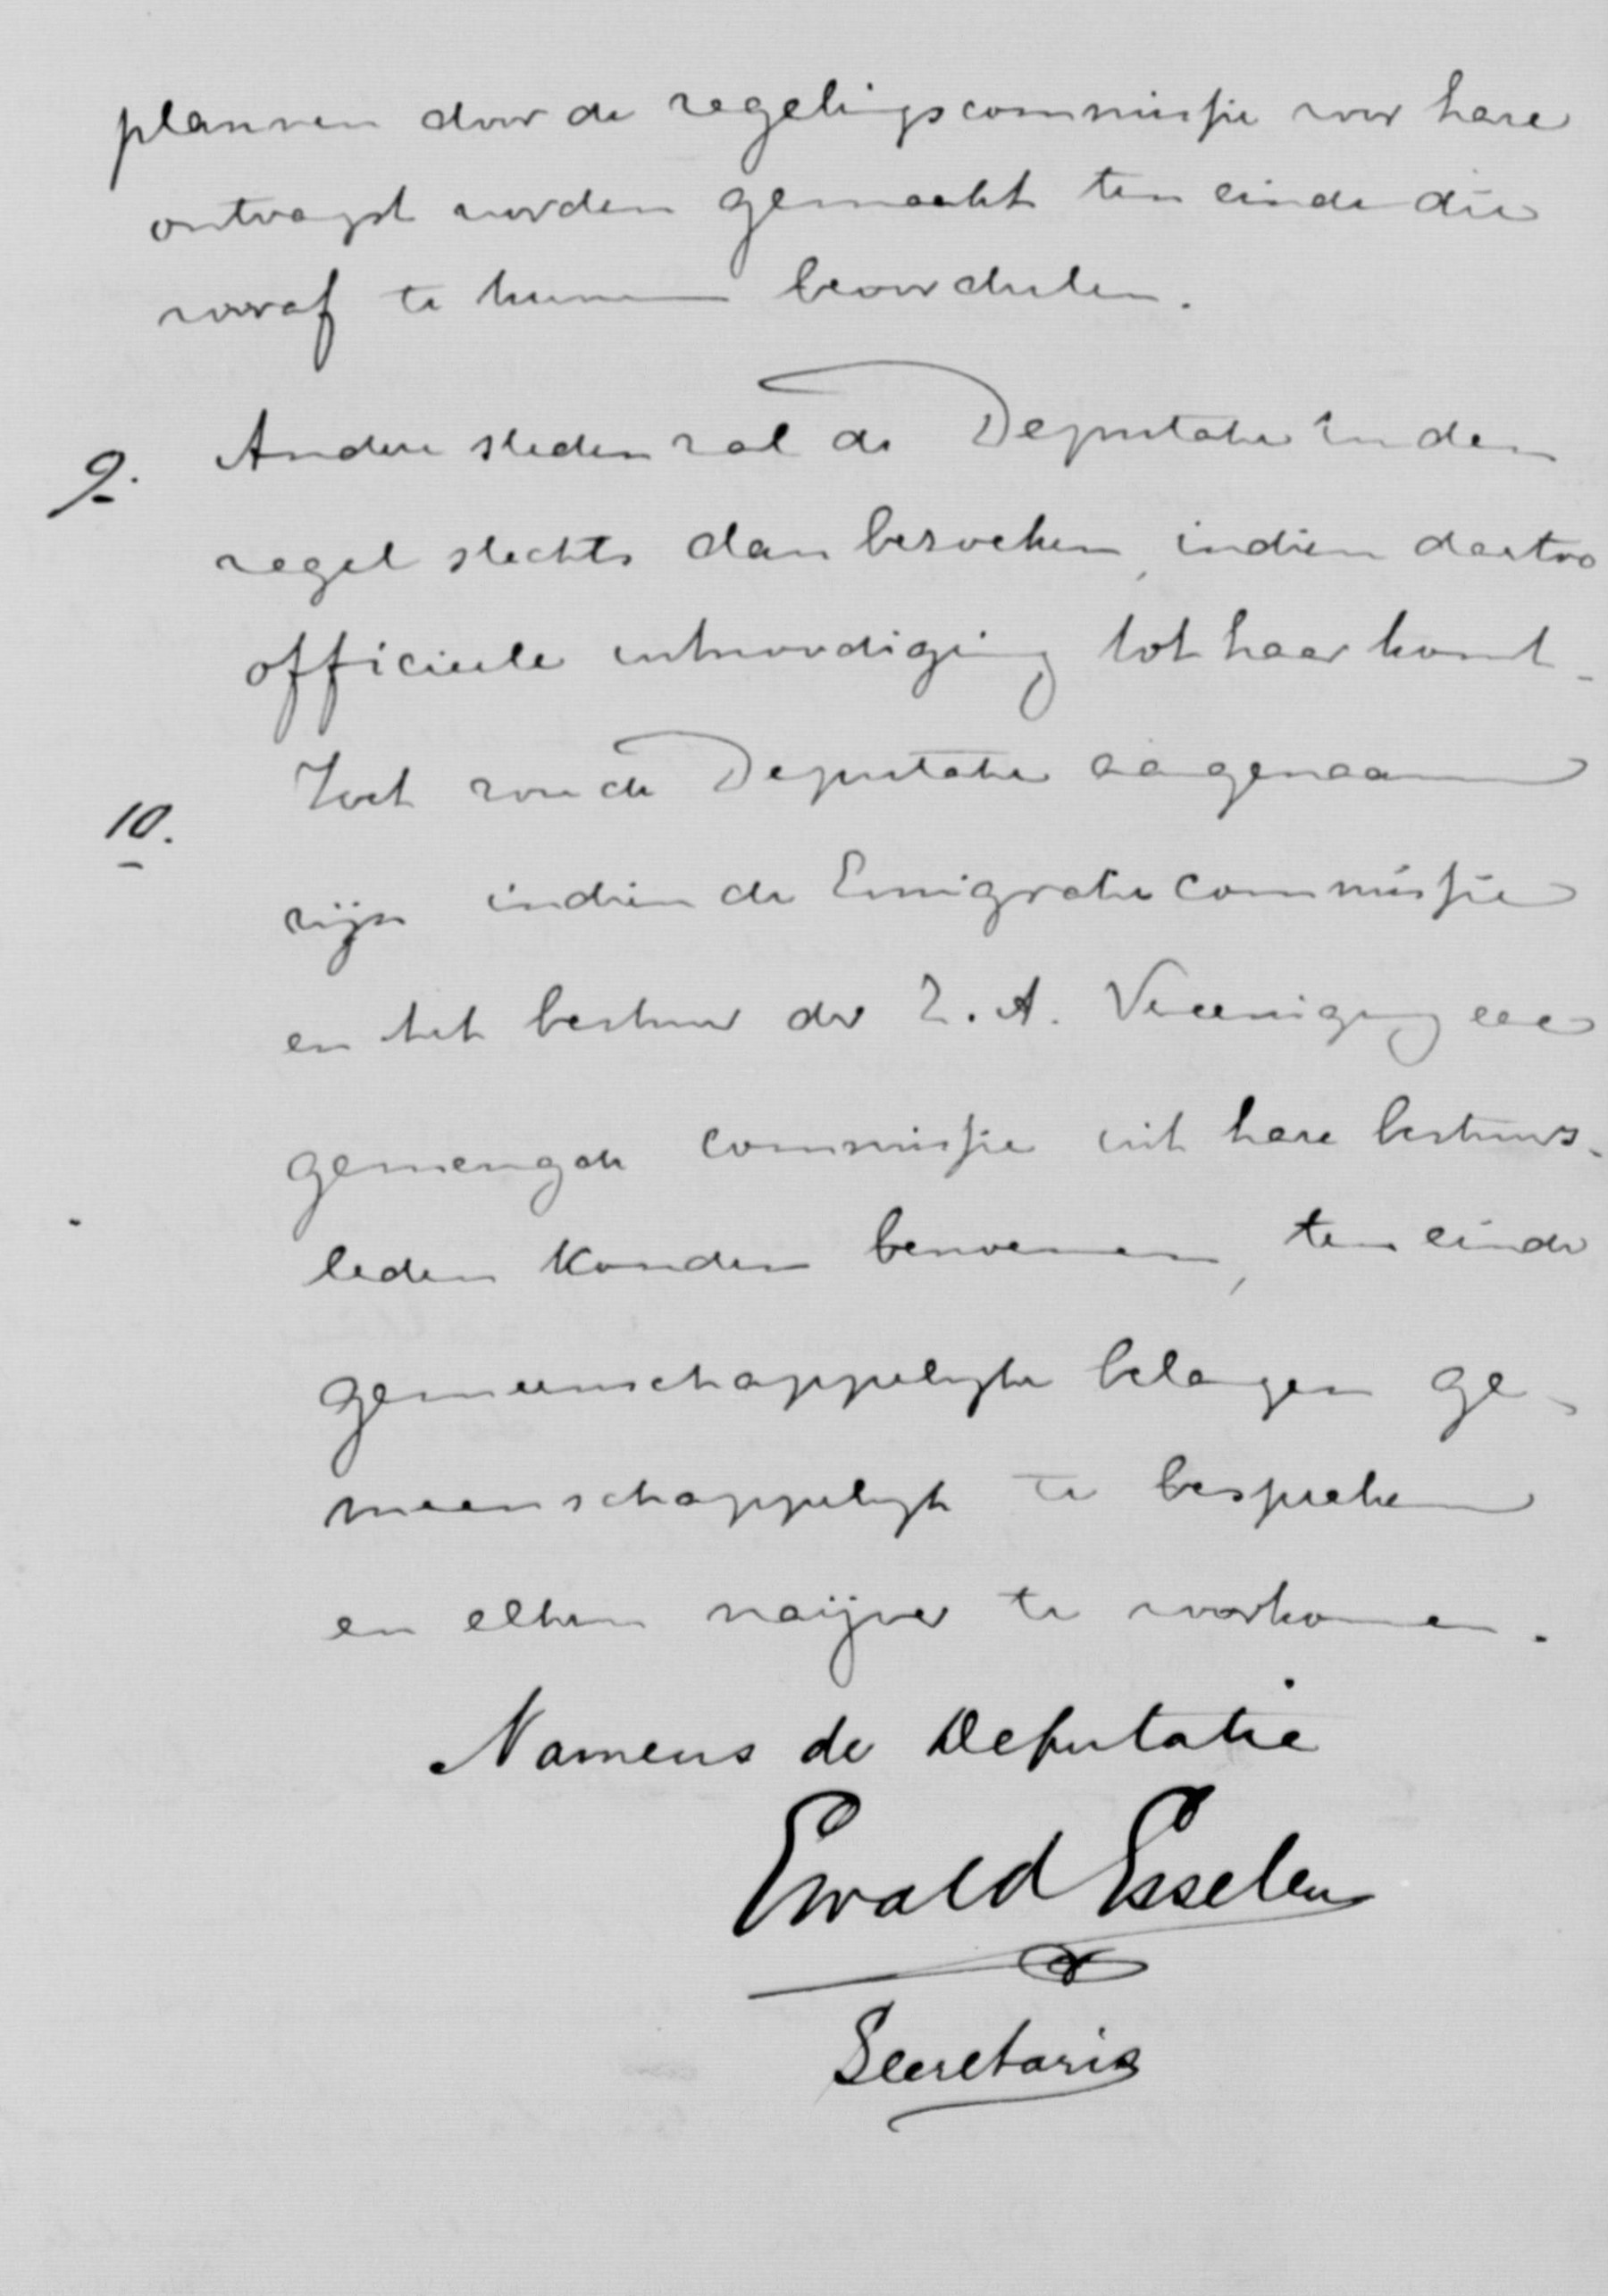 plannen door de regelingscommissie voor hare
ontvangst worden gemaakt ten einde die
vooraf te kunnen beoordeelen.
9. Andere steden zal de Deputatie in den
regel slechts dan bezoeken, indien daartoe
officieele uitnoodiging tot haar komt.
10. Het zou de Deputatie aangenaam
zijn indien de Emigratie commissie
en het bestuur der Z. A. Vereeniging eene
gemengde commissie uit hare bestuurs-
leden konden benoemen, ten einde
gemeenschappelijke belangen ge-
meenschappelijk te bespreken
en elken naijver te voorkomen.
Namens de Deputatie
Ewald Esselen
Secretaris